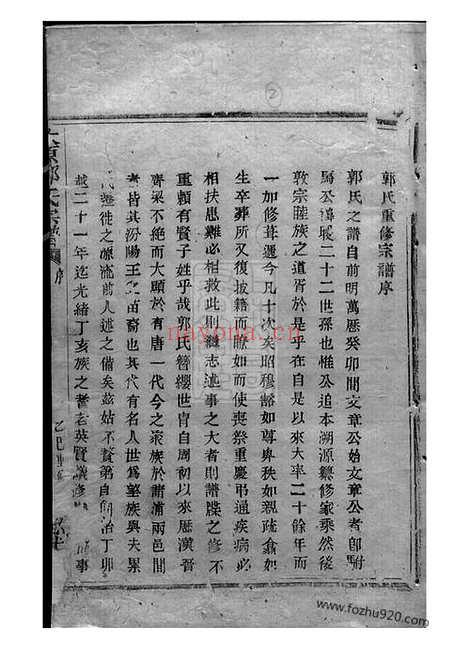 郭氏重修宗譜序
郭氏之譜自前明萬曆癸卯間文章公始文章公者郎駙
馬公曖二十二世孫也惟公追本溯源纂修家乘然後
敦宗睦族之道胥於是乎在自是以來大率二十餘年而
一加修葺邇今凡十次矣昭穆謚如尊卑秩如親疏翕如
生卒葬所又復拔籍而獻如而使喪祭重慶弔通疾病必
相扶患難必相救此則繼志述事之大者則譜牒之修不
重賴有賢子姓乎哉郭氏簪纓世胄自周初以來歷漢晉
齊梁不絕而大顯於有唐一代今之聚族於諸浦兩邑間
者皆其汾陽王之苗裔也其代有名人世為望族與夫累
代遷徙之源流前人述之備矣茲姑不贅第自同治丁卯
越二十一年迄光緒丁亥族之耆老英賢議修 事
郭氏宗譜
序
nayona.cn
www.fozhu920.com